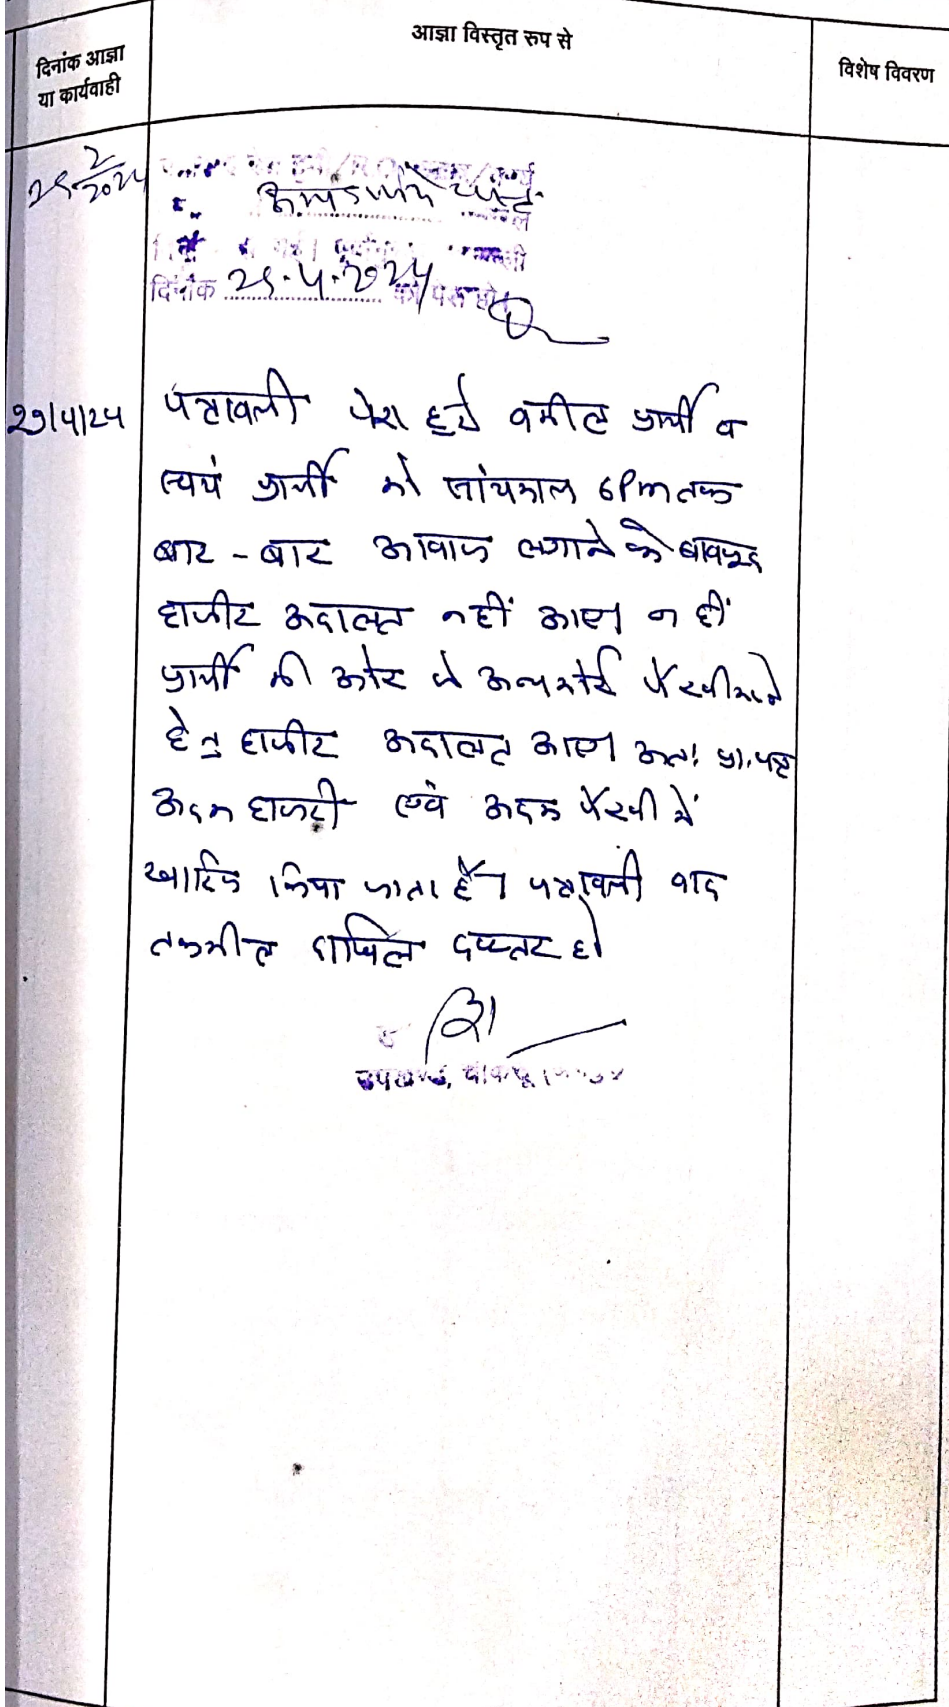 दिनांक आज्ञा
या कार्यवाही
आज्ञा विस्तृत रुप से
विशेष विवरण
दिनांक 25.4.2024 को पेश हो
29/4/24
पत्रावली पेश हुई वकील प्रार्थी व
स्वयं प्रार्थी को सांयकाल 6Pm तक
बार - बार आवाज लगाने के बावजूद
हाजीर अदालत नहीं आए न ही
प्रार्थी की ओर से अन्य कोई पैरवी करने
हेतु हाजीर अदालत आए अतः प्रा. पत्र
अदम हाजरी एवं अदम पैरवी में
खारिज किया जाता है। पत्रावली बाद
तकमील दाखिल दफ्तर हो